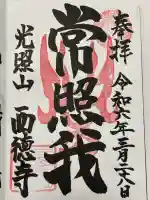 奉拝 令和六年三月二八日
常照我
光照山 西徳寺